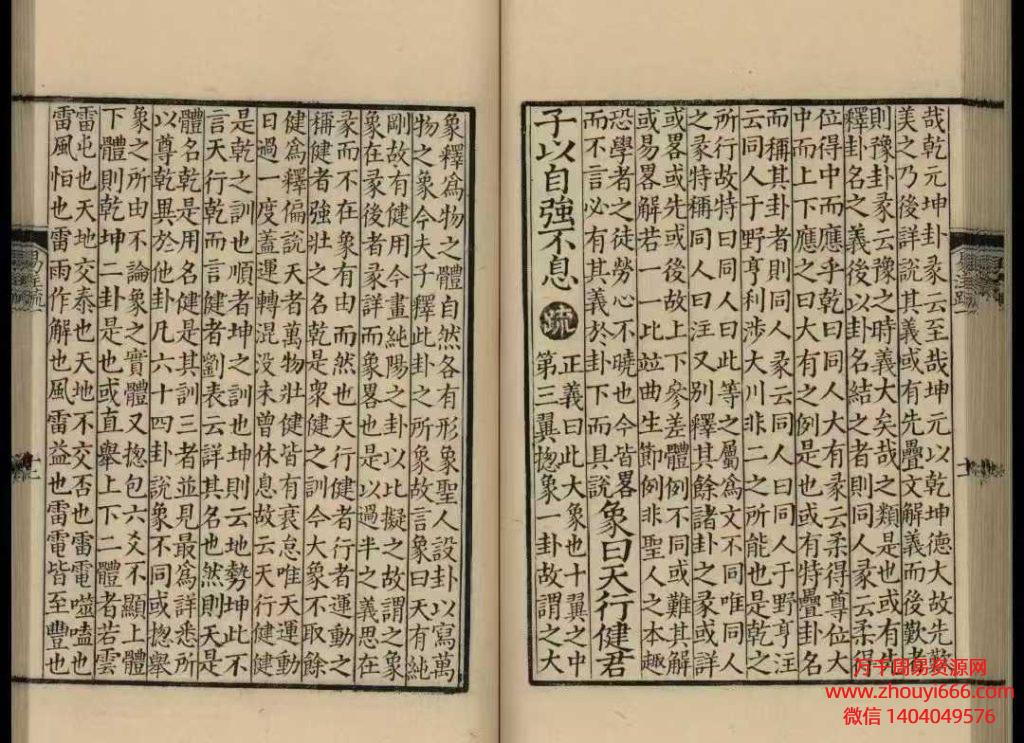 哉乾元坤卦彖云至哉坤元以乾坤德大故先歎
美之乃後詳說其義或有先疊文解義而後歎者
則豫卦彖云豫之時義大矣哉之類是也或有先
釋卦名之義後以卦名結之者則同人彖云柔得
位得中而應乎乾曰同人大有彖云柔得尊位大
中而上下應之曰大有之例是也或有特疊卦名
而稱其卦者則同人彖云同人曰同人于野亨注
云同人于野亨利涉大川非二之所能也是乾之
所行故特曰同人曰此等之屬爲文不同唯同人
之彖特稱同人曰注又別釋其餘諸卦之彖或詳
或畧或先或後故上下參差體例不同或難其解
或易畧解若一一比竝曲生節例非聖人之本趣
恐學者之徒勞心不曉也今皆畧
而不言必有其義於卦下而具說
象曰天行健君
子以自強不息 疏
正義曰此大象也十翼之中
第三翼揔象一卦故謂之大
象釋爲物之體自然各有形象聖人設卦以寫萬
物之象今夫子釋此卦之所象故言象曰天有純
剛故有健用今畫純陽之卦以比擬之故謂之象
象在彖後者彖詳而象畧也是以過半之義思在
彖而不在象有由而然也天行健者行者運動之
稱健者強壯之名乾是衆健之訓今大象不取餘
健爲釋偏說天者萬物壯健皆有衰怠唯天運動
日過一度蓋運轉混没未曾休息故云天行健健
是乾之訓也順者坤之訓也坤則云地勢坤此不
言天行乾而言健者劉表云詳其名也然則天是
體名乾是用名健是其訓三者並見最爲詳悉所
以尊乾異於他卦凡六十四卦說象不同或揔舉
象之所由不論象之實體又揔包六爻不顯上體
下體則乾坤二卦是也或直舉上下二體者若雲
雷屯也天地交泰也天地不交否也雷電噬嗑也
雷風恒也雷雨作解也風雷益也雷電皆至豐也
万千周易资源网
www.zhouyi666.com
微信 1404049576